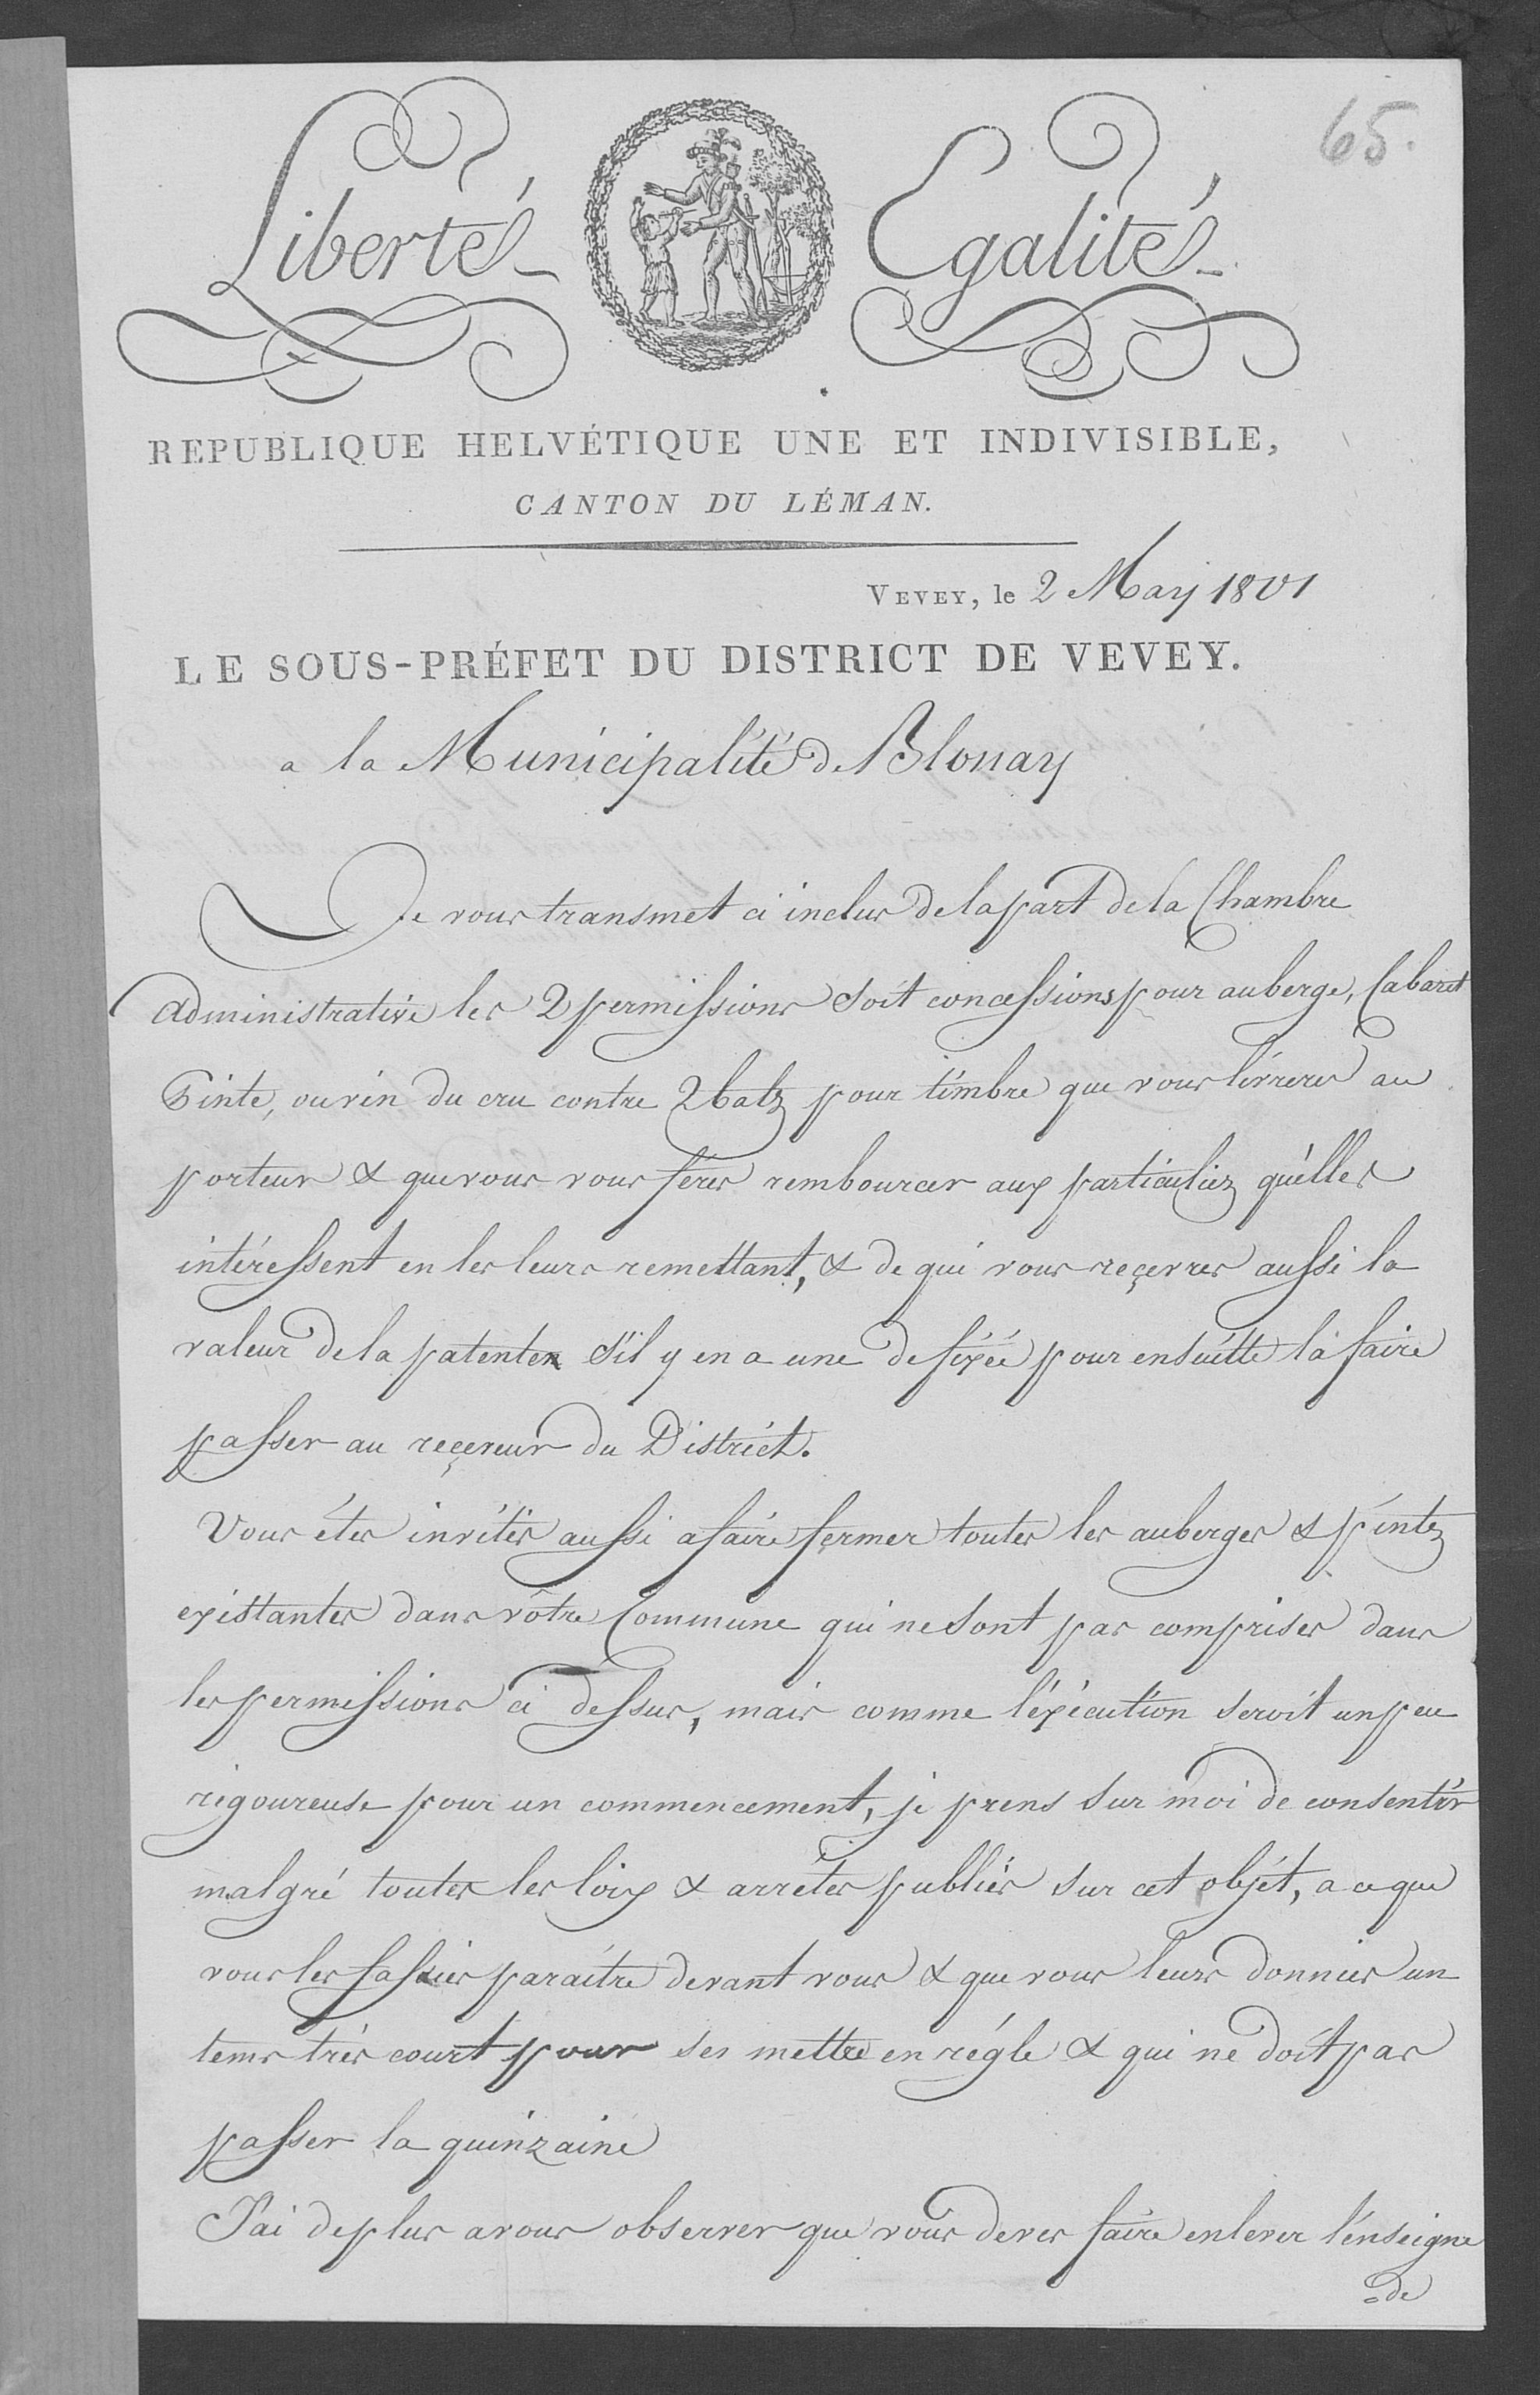 65.
Liberté Egalité
REPUBLIQUE HELVÉTIQUE UNE ET INDIVISIBLE,
CANTON DU LÉMAN.
VEVEY, le 2 May 1801
LE SOUS-PRÉFET DU DISTRICT DE VEVEY.
a la Municipalité de Blonay
Je vous transmet ci inclus de la part de la Chambre
Administrative les 2 permissions soit concessions pour auberge, Cabaret
Pinte, ou vin du cru contre 2 batz pour timbre que vous livrerés au
porteur & que vous vous ferés rembourcer aux particuliez qu'elles
intéressent en les leurs remettant, & de qui vous reçevres aussi la
valeur de la patente s'il y en a une de fixée pour ensuitte la faire
passer au reçeveur du District.
Vous étes invités aussi a faire fermer toutes les auberges & pintez
existantes dans vôtre Commune qui ne sont pas comprises dans
les permissions ci dessus, mais comme l'éxécution seroit un peu
rigoureuse pour un commencement, je prens sur moi de consentir
malgré toutes les loix & arrétes publiés sur cet objét, a ce que
vous les fassies paraitre devant vous & que vous leurs donnies un
tems très court pour ses mettre en régle & qui ne doit pas
passer la quinzaine
J'ai de plus a vous observer que vous deves faire enlever l'enseigne
de